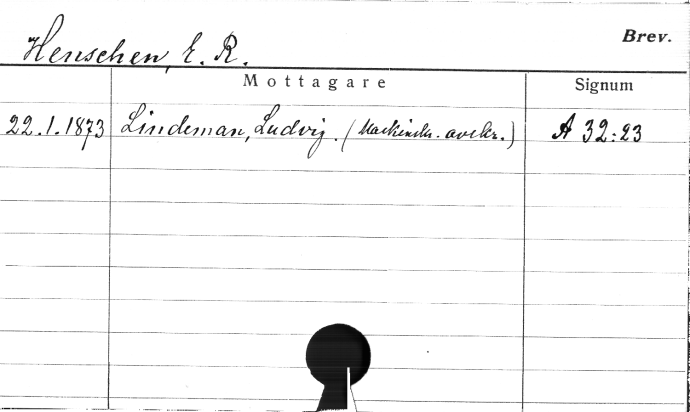 Brev.
Henschen, E. R.
Mottagare Signum
22.1.1873 Lindeman, Ludvig. (Maskinskr. avskr.) A 32:23